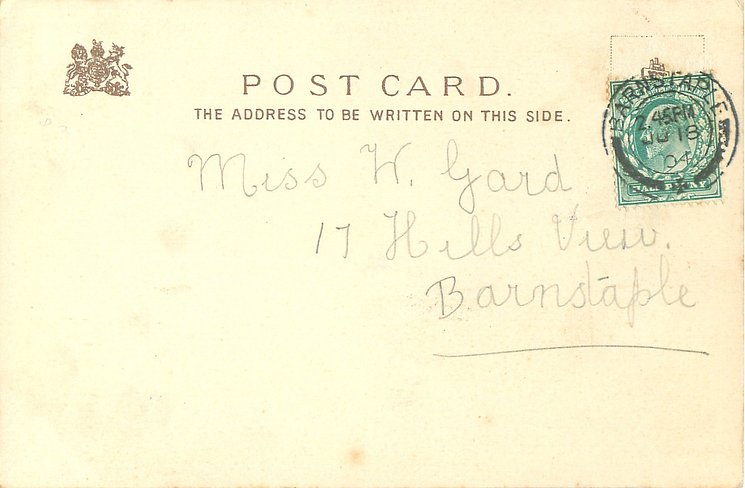 POST CARD.
THE ADDRESS TO BE WRITTEN ON THIS SIDE.
BARNSTAPLE
2.45PM
18
04
HALFPENNY
Miss W. Gard
17 Hills View.
Barnstaple